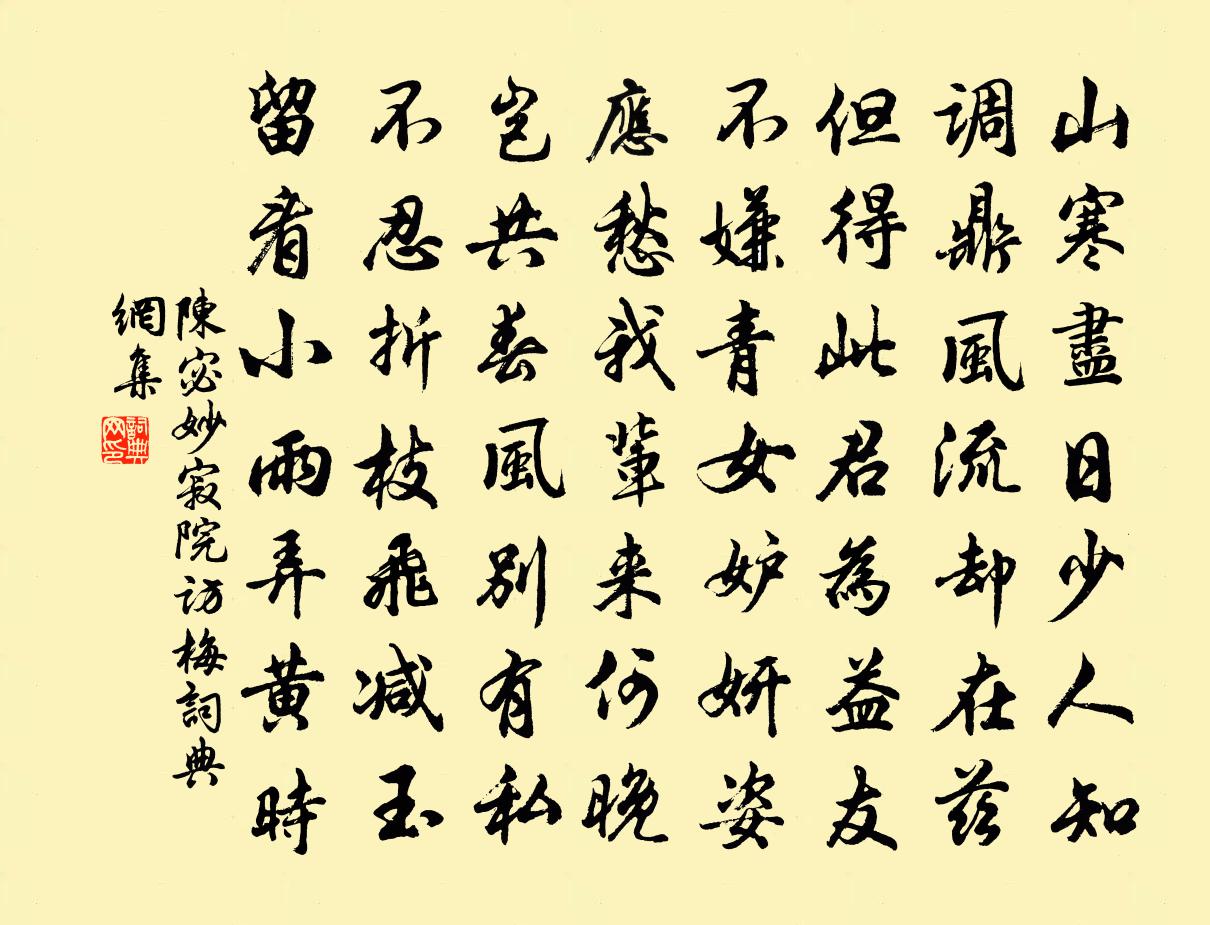 山寒盡日少人知
调鼎風流却在茲
但得此君為益友
不嫌青女妒妍姿
應愁我輩来何晚
豈共春風別有私
不忍折枝飛减玉
留看小雨弄黄時
陳宓妙寂院訪梅詞典
網集
詞典
网印